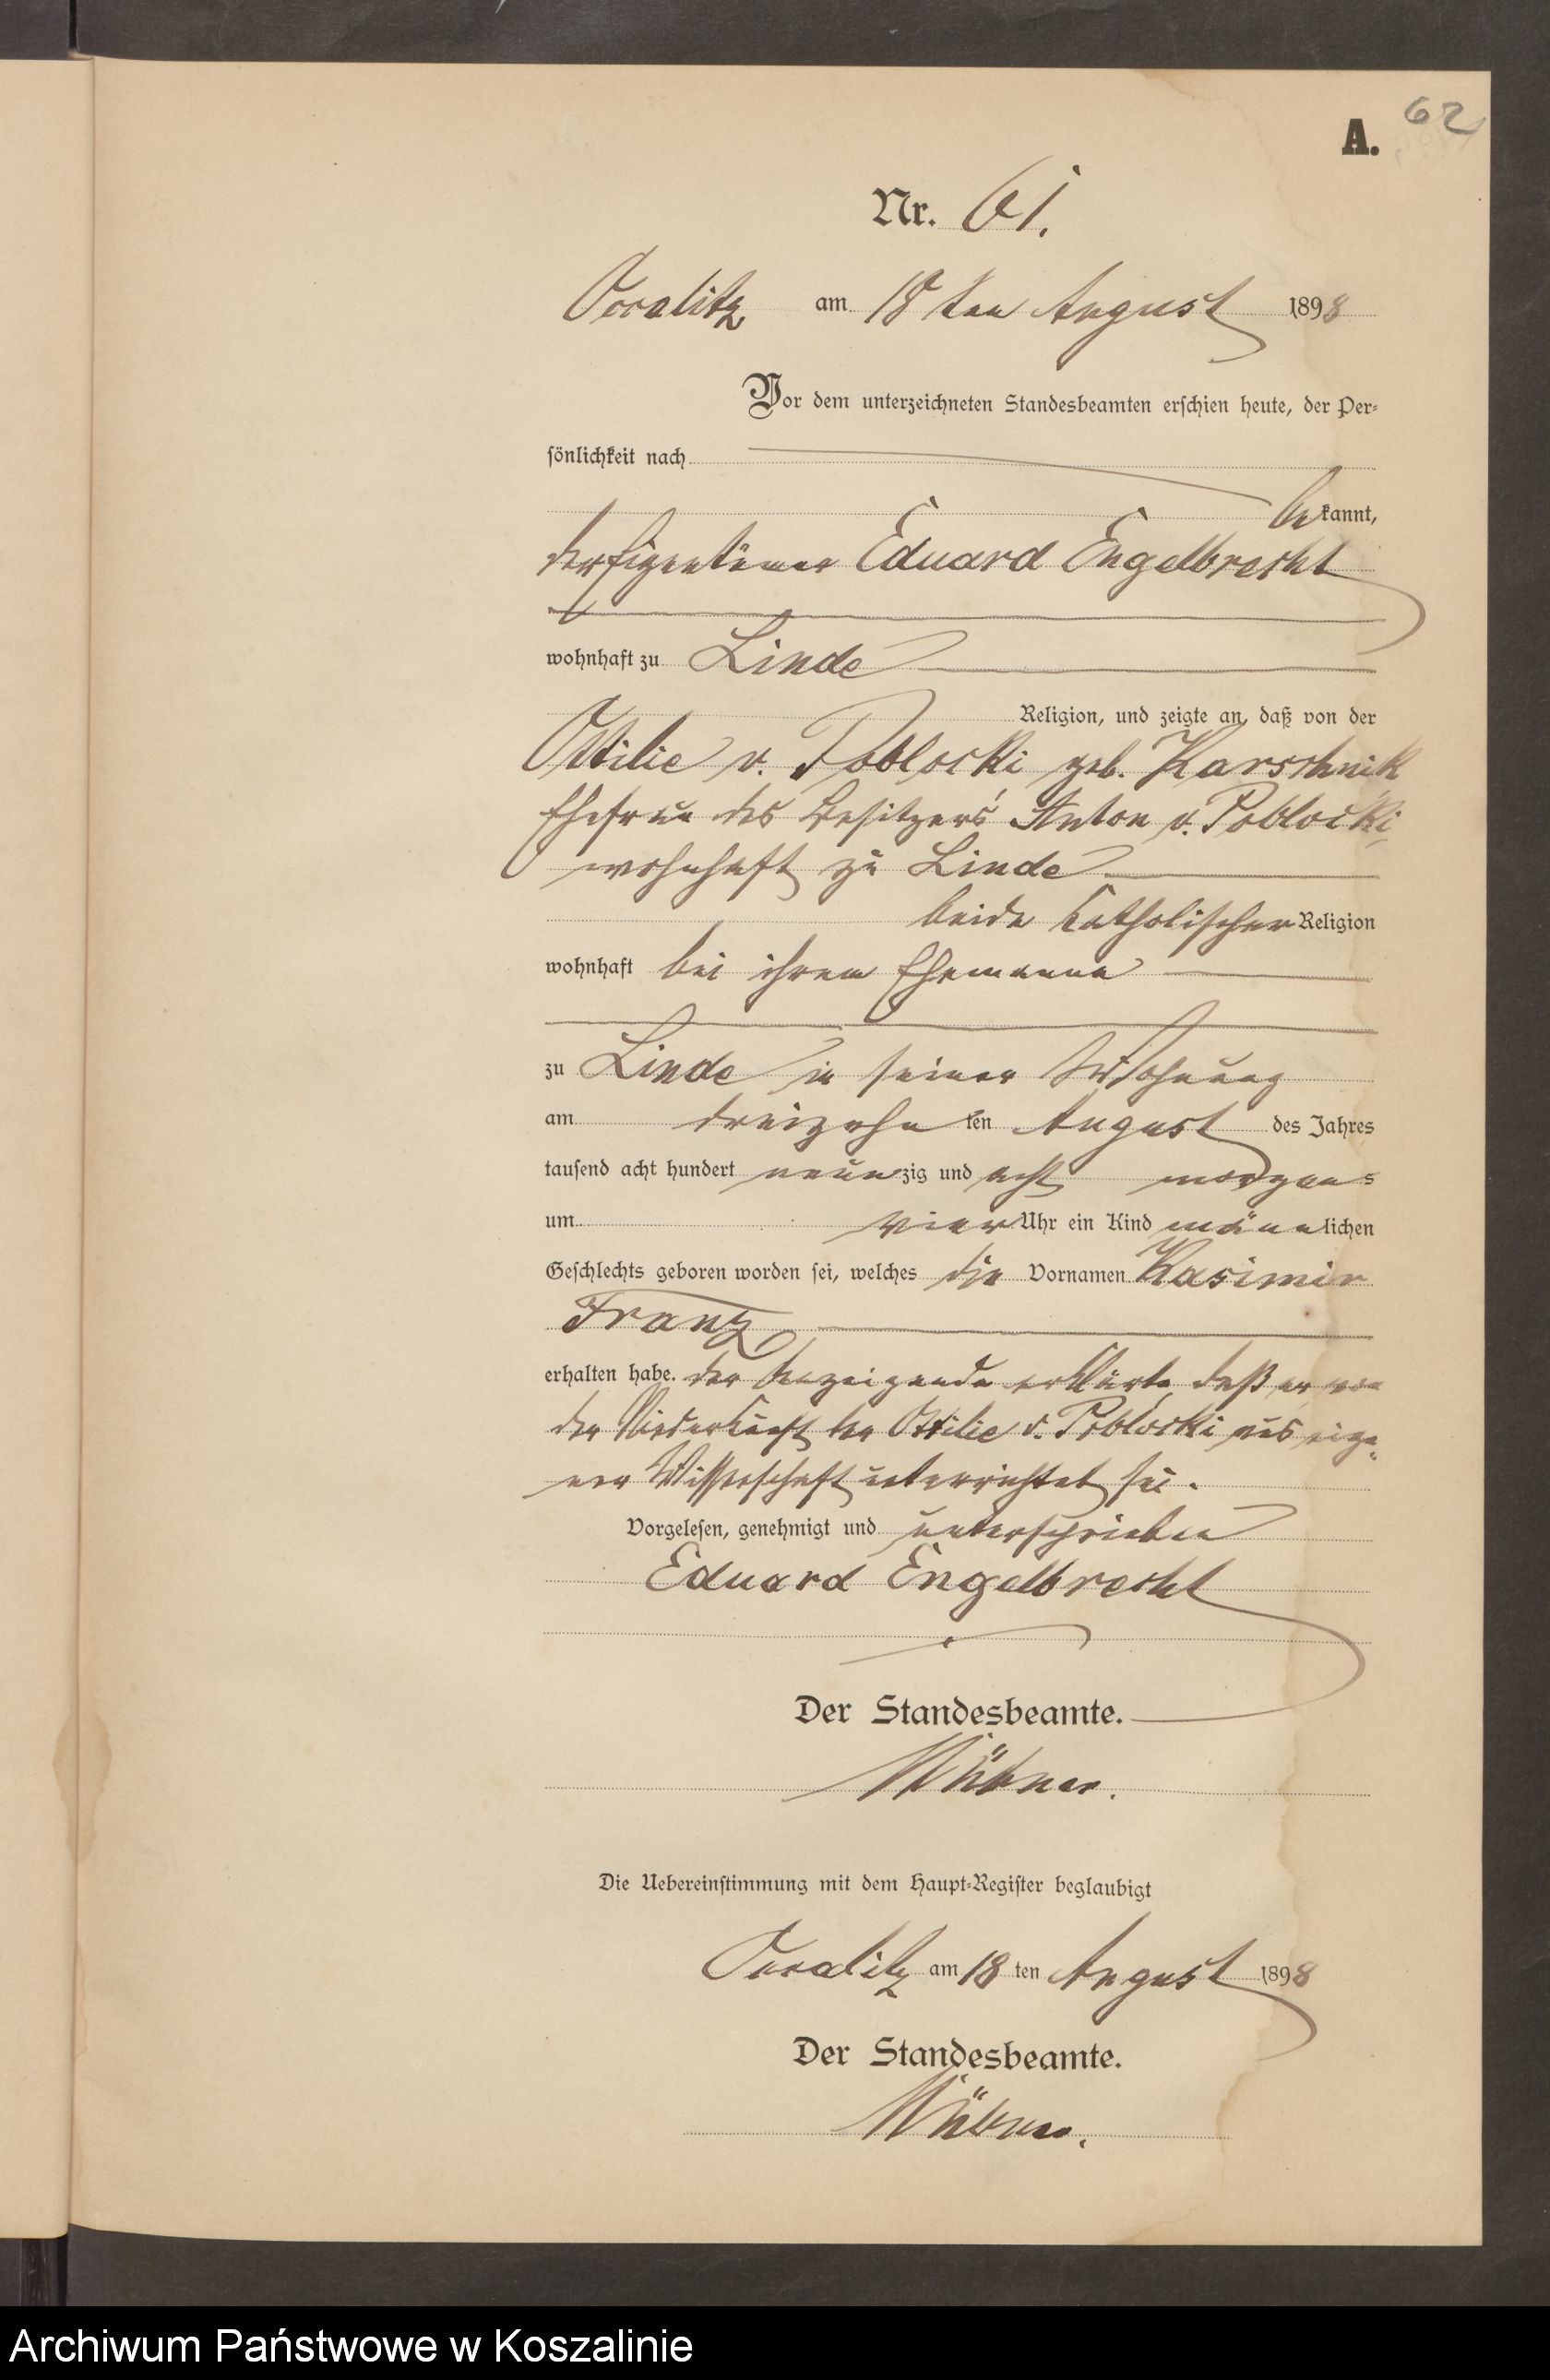 62
A.
Nr. 61.
Oßalitz am 18ten August 1898
Vor dem unterzeichneten Standesbeamten erschien heute, der Per-
sönlichkeit nach
bekannt,
der Eigentümer Eduard Engelbrecht
wohnhaft zu Linde
Religion, und zeigte an, daß von der
Ottilie v. Poblocki geb. Karschnik
Ehefrau des Besitzers Anton v. Poblocki
wohnhaft zu Linde
beide katholischer Religion
wohnhaft bei ihrem Ehemanne
zu Linde in seiner Wohnung
am dreizehnten August des Jahres
tausend acht hundert neunzig und acht morgens
um vier Uhr ein Kind männlichen
Geschlechts geboren worden sei, welches die Vornamen Kasimir
Franz
erhalten habe. Der Anzeigende erklärte, daß er von
der Niederkunft der Ottilie v. Poblocki aus eige-
ner Wissenschaft unterrichtet sei.
Vorgelesen, genehmigt und unterschrieben
Eduard Engelbrecht
Der Standesbeamte.
Die Uebereinstimmung mit dem Haupt-Register beglaubigt
am 18 ten August 1898
Der Standesbeamte.
Archiwum Państwowe w Koszalinie